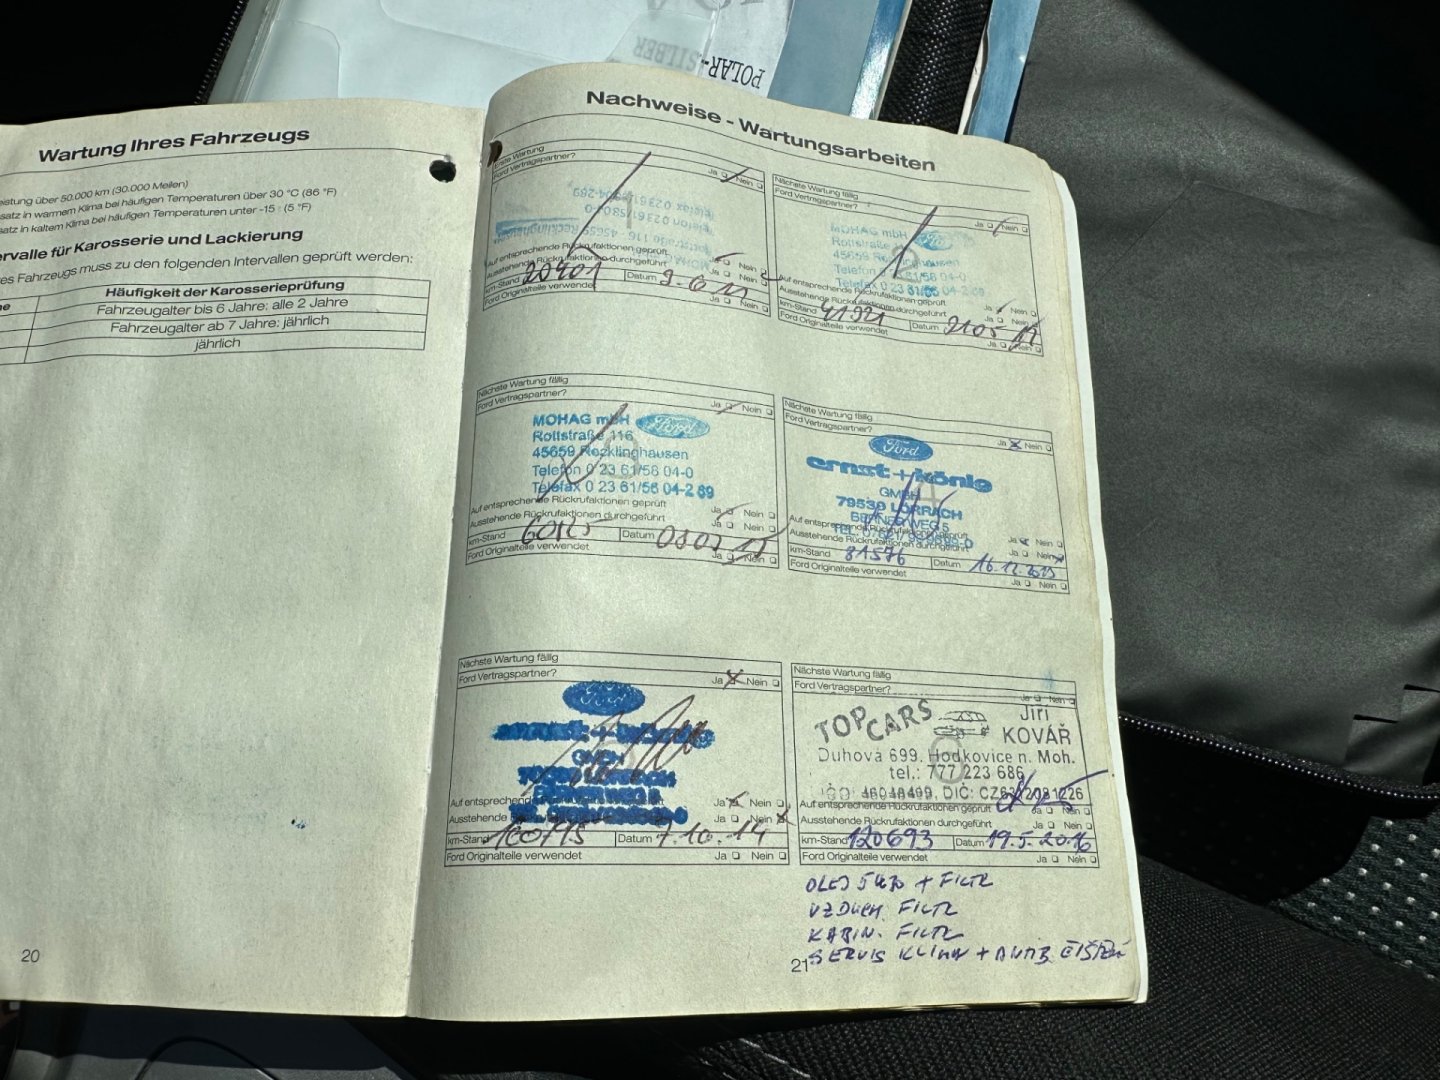 SILBER
POLAR-
Wartung Ihres Fahrzeugs
eistung über 50.000 km (30.000 Meilen)
satz in warmem Klima bei häufigen Temperaturen über 30 °C (86 °F)
satz in kaltem Klima bei häufigen Temperaturen unter -15 (5 °F)
ervalle für Karosserie und Lackierung
es Fahrzeugs muss zu den folgenden Intervallen geprüft werden:
ne Häufigkeit der Karosserieprüfung
Fahrzeugalter bis 6 Jahre: alle 2 Jahre
Fahrzeugalter ab 7 Jahre: jährlich
jährlich
20
Nachweise - Wartungsarbeiten
Erste Wartung
Ford Vertragspartner? Ja Nein
45659 Recklinghausen
Auf entsprechende Rückrufaktionen geprüft Ja Nein
Ausstehende Rückrufaktionen durchgeführt Ja Nein
km-Stand 20401 Datum 9.6.11
Ford Originalteile verwendet Ja Nein
Nächste Wartung fällig
Ford Vertragspartner? Ja Nein
MOHAG mbH Ford
Rottstraße
45659 Recklinghausen
Telefon 0 23 61/58 04-0
Telefax 0 23 61/56 04-2 89
Auf entsprechende Rückrufaktionen geprüft Ja Nein
Ausstehende Rückrufaktionen durchgeführt Ja Nein
km-Stand 41921 Datum
Ford Originalteile verwendet Ja Nein
Nächste Wartung fällig
Ford Vertragspartner? Ja Nein
MOHAG mbH Ford
Rottstraße 116
45659 Recklinghausen
Telefon 0 23 61/56 04-0
Telefax 0 23 61/56 04-2 89
Auf entsprechende Rückrufaktionen geprüft Ja Nein
Ausstehende Rückrufaktionen durchgeführt Ja Nein
km-Stand 60125 Datum
Ford Originalteile verwendet Ja Nein
Nächste Wartung fällig
Ford Vertragspartner? Ja Nein
Ford
ernst+könig
GMBH
79539 LÖRRACH
WEG 5
Auf entsprechende Rückrufaktionen geprüft Ja Nein
Ausstehende Rückrufaktionen durchgeführt Ja Nein
km-Stand 81576 Datum 16.12.2013
Ford Originalteile verwendet Ja Nein
Nächste Wartung fällig
Ford Vertragspartner? Ja Nein
Ford
GMBH
LÖRRACH
Auf entsprechende Ja Nein
Ausstehende Ja Nein
km-Stand 100715 Datum 7.10.-14
Ford Originalteile verwendet Ja Nein
Nächste Wartung fällig
Ford Vertragspartner? Ja Nein
TOP CARS Jiří
KOVÁŘ
Duhová 699, Hodkovice n. Moh.
tel.: 777 223 686
IČO: 46048499, DIČ:
Auf entsprechende Rückrufaktionen geprüft Ja Nein
Ausstehende Rückrufaktionen durchgeführt Ja Nein
km-Stand 120693 Datum 19.5.2016
Ford Originalteile verwendet Ja Nein
OLEJ 5W30 + FILTR
VZDUCH. FILTR
KABIN. FILTR
SERVIS KLIMA +
21